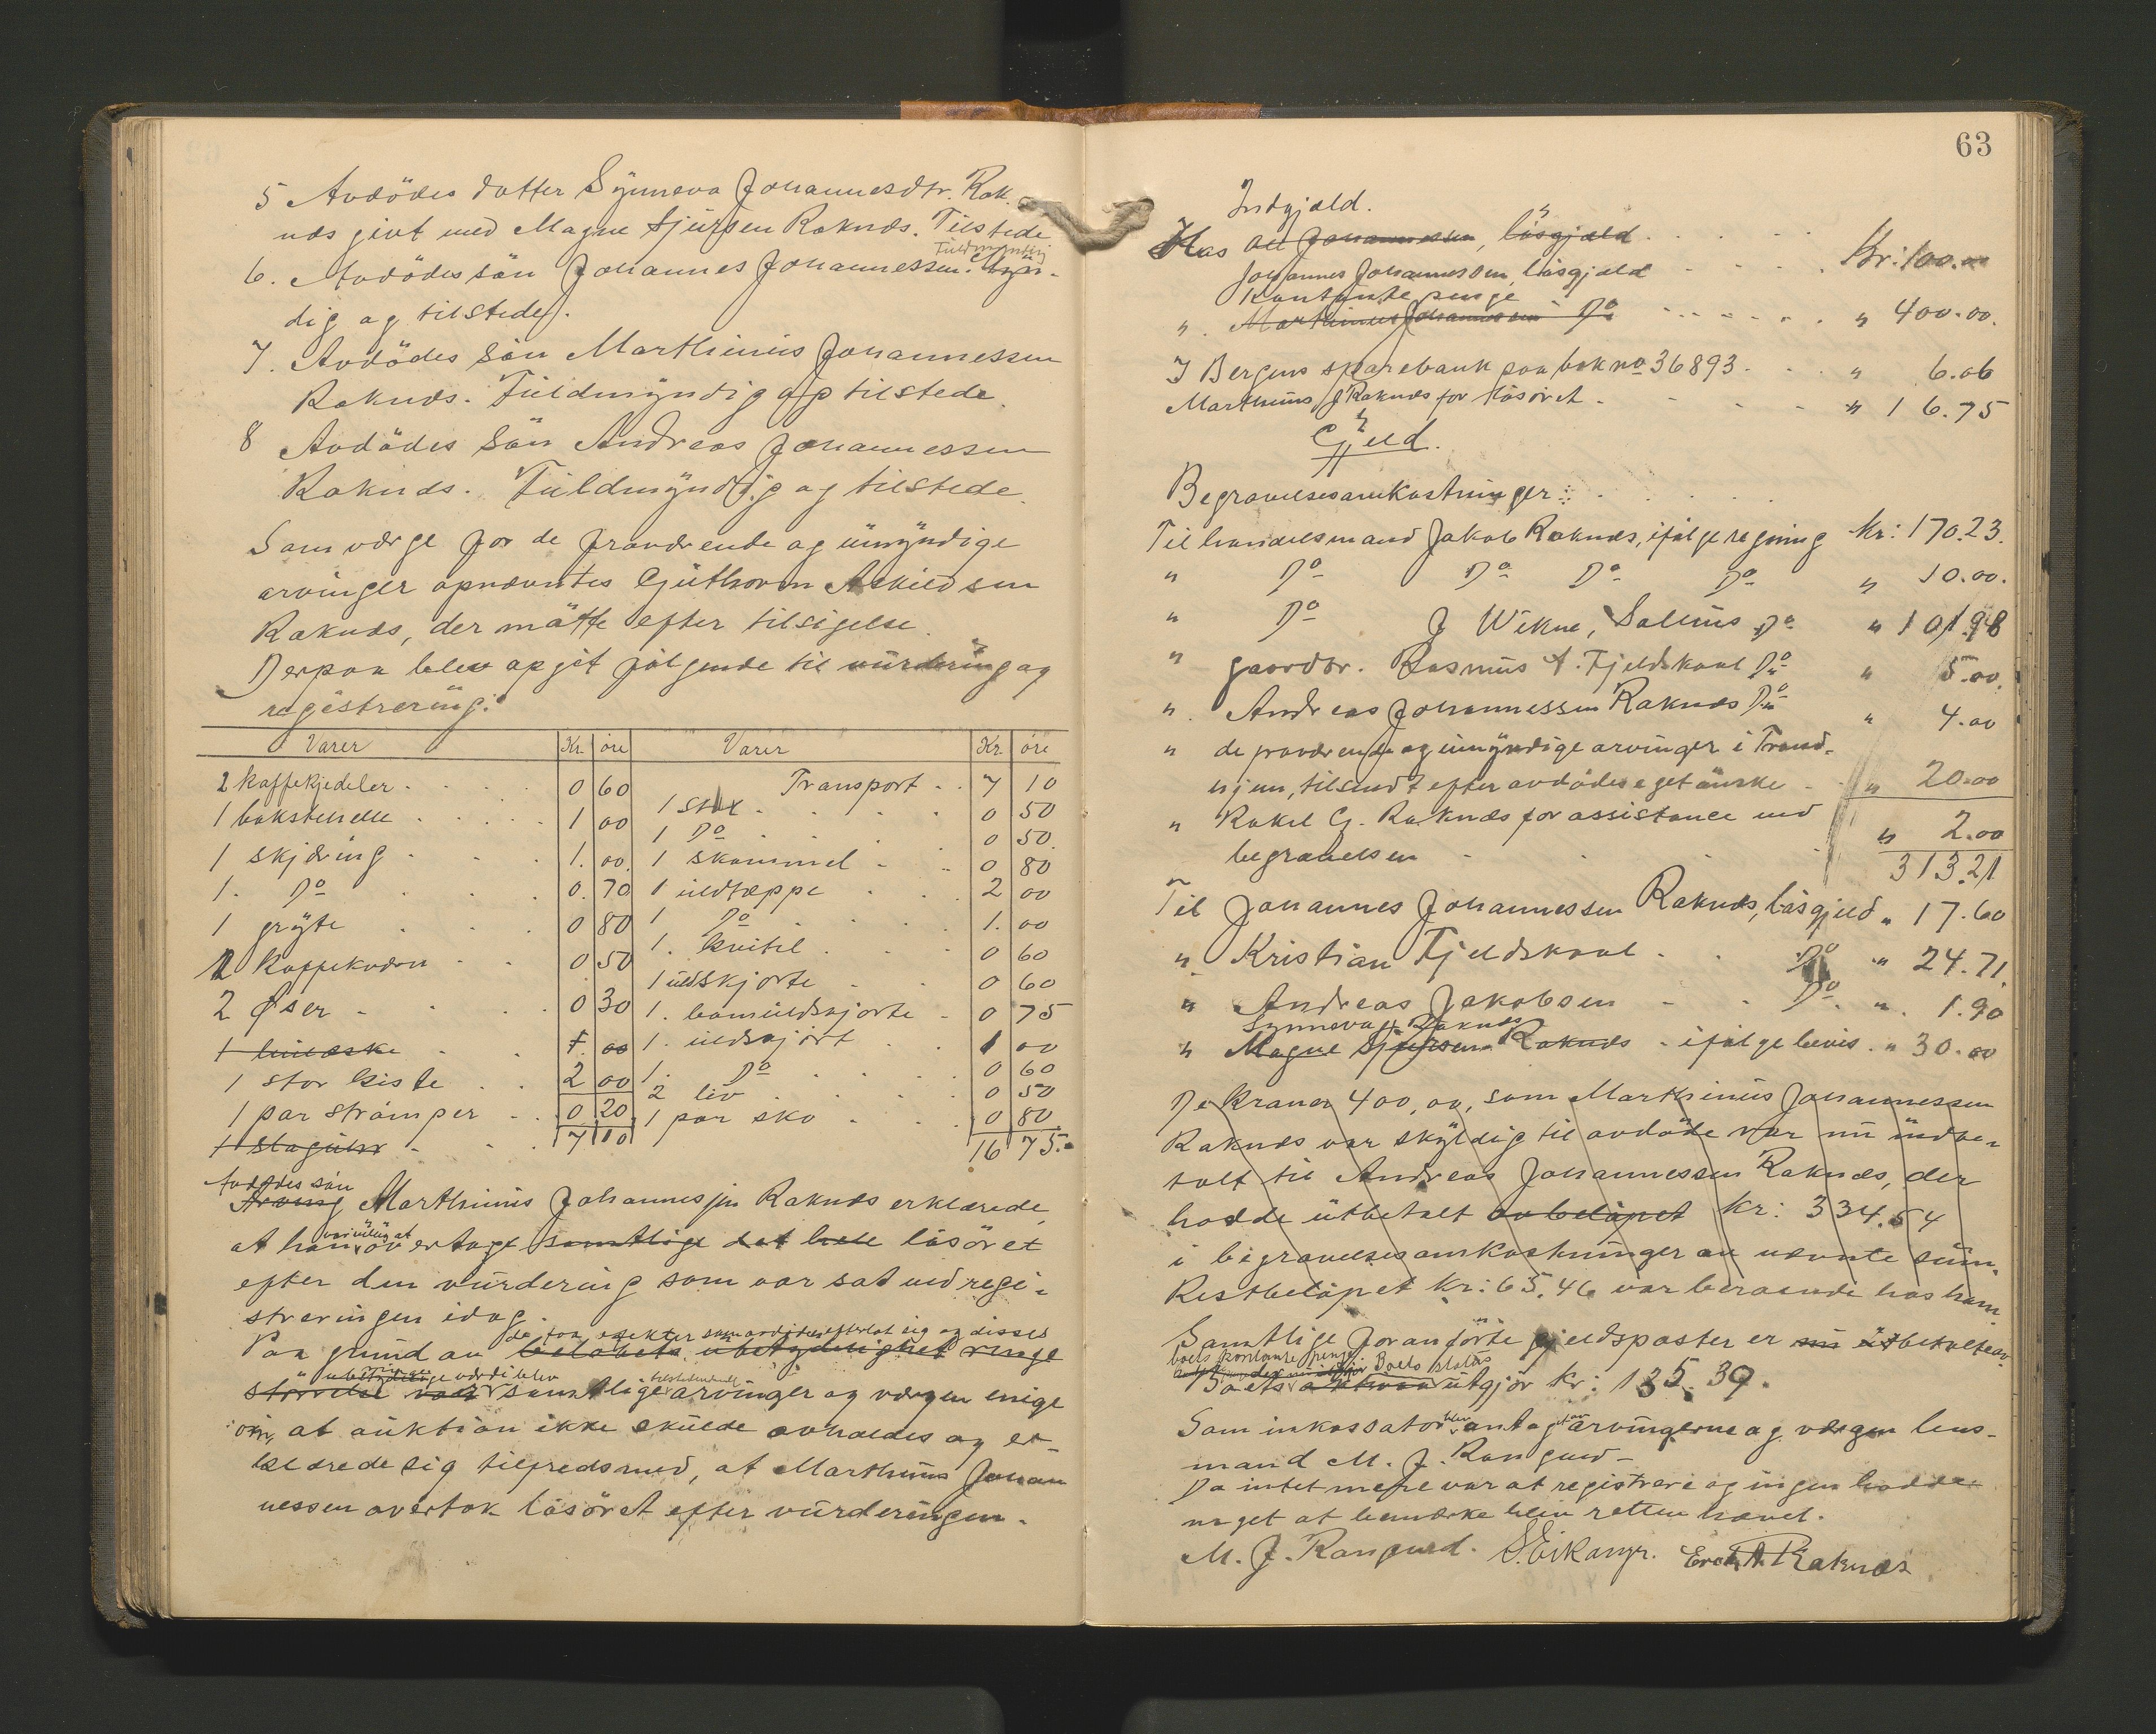 5 Avdödes datter Synneva Johannesdtr. Rak-
næs givt med Magne Sjursen Raknæs. Tilstede
Fuldmyndig
6. Avdödes sön Johannes Johannessen. Myn-
dig og tilstede.
7. Avdödes sön Marthinus Johannessen
Raknæs. Fuldmyndig og tilstede.
8 Avdödes sön Andreas Johannessen
Raknæs. Fuldmyndig og tilstede.
Som værge for de fraværende og umyndige
arvinger opnævntes Guthorm Askildsen
Raknæs, der mötte efter tilsigelse.
Derpaa blev opgit fölgende til vurdering og
registrering:
Varer Kr. öre Varer Kr. öre
2 kaffekjedeler 0 60 Transport 7 10
1 bakstehelle 1 00 1 stol 0 50
1 skjæring 1. 00 1 Do 0 50
1. Do 0. 70 1 skammel 0 80
1 gryte 0 80 1 uldtæppe 2 00
1 Kaffekvern 0 50 1 Do 1. 00
2 Øser 0 30 1. kvitel 0 60
1 1. 00 1 uldskjorte 0 60
1 stor kiste 2 00 1. bomuldskjorte 0 75
1 par strömper 0 20 1. uldskjört 1 00
1 slaguhr 7 10 1. Do 0 60
2 liv 0 50
1 par sko 0 80
16 75
Avdödes sön
Arving Marthinus Johannessen Raknæs erklærede,
var villig at
at han overtage samtlige det hele lösöret
efter den vurdering som var sat ved regi-
streringen idag.
de faa effekter som avdöde efterlot sig og disses
Paa grund av beløbets ubetydelighet ringe
ubetydelige værdi blev
störrelse var samtlige arvinger og værgen enige
om, at auktion ikke skulde avholdes og er-
klærede sig tilfreds med, at Marthinus Johan
nessen overtok lösöret efter vurderingen.
63
Indgjæld.
Hos Ole Johannessen, lösgjæld
Johannes Johannessen, lösgjæld Kr: 100.00
Kontante penge
" Marthinus Johannessen Do " 400.00.
I Bergens sparebank paa bok no 36893. " 6.06
Marthinus J Raknæs for lösöret " 16.75
Gjeld.
Begravelsesomkostninger:
Til handelsmand Jakob Raknæs, ifölge regning kr: 170.23.
" Do Do Do Do " 10.00.
" Do J Wikne, Salhus Do " 101.98
" gaardbr. Rasmus A. Fjeldskaal Do " 5.00.
" Andreas Johannessen Raknæs Do " 4.00
" de fraværende og umyndige arvinger i Trond-
hjem, tilsendt efter avdödes eget önske " 20.00
" Rakel G. Raknæs for assistance ved
begravelsen " 2.00
313.21
Til Johannes Johannessen Raknæs, lösgjeld " 17.60
" Kristian Fjeldskaal Do " 24.71.
" Andreas Jakobsen Do " 1.90
Synneva J Raknæs
" Magne Sjursen Raknæs ifölge bevis " 30.00
De Kroner 400,00, som Marthinus Johannessen
Raknæs var skyldig til avdöde var nu indbe-
talt til Andreas Johannessen Raknæs, der
hadde utbetalt av beløpet kr: 334.54
i begravelsesomkostninger av nævnte sum.
Restbeløpet kr: 65.46 var beroende hos ham.
Samtlige foranförte gjeldsposter er nu utbetalte av
boets kontante penge. Boets status
Boets aktiva utgjör kr: 135.39.
Som inkassator blev antaget av arvingerne og værgen lens-
mand M. J. Rongved
Da intet mere var at registrere og ingen hadde
noget at bemærke blev retten hævet.
M. J. Rongved. S. Eikanger. Erik A. Raknæs